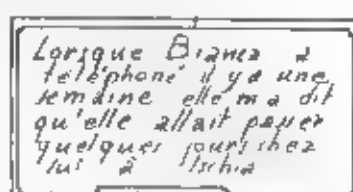 Lorsque Bianca a
téléphoné il y a une
semaine elle m a dit
qu'elle allait passer
quelques jours chez
lui à Ischia